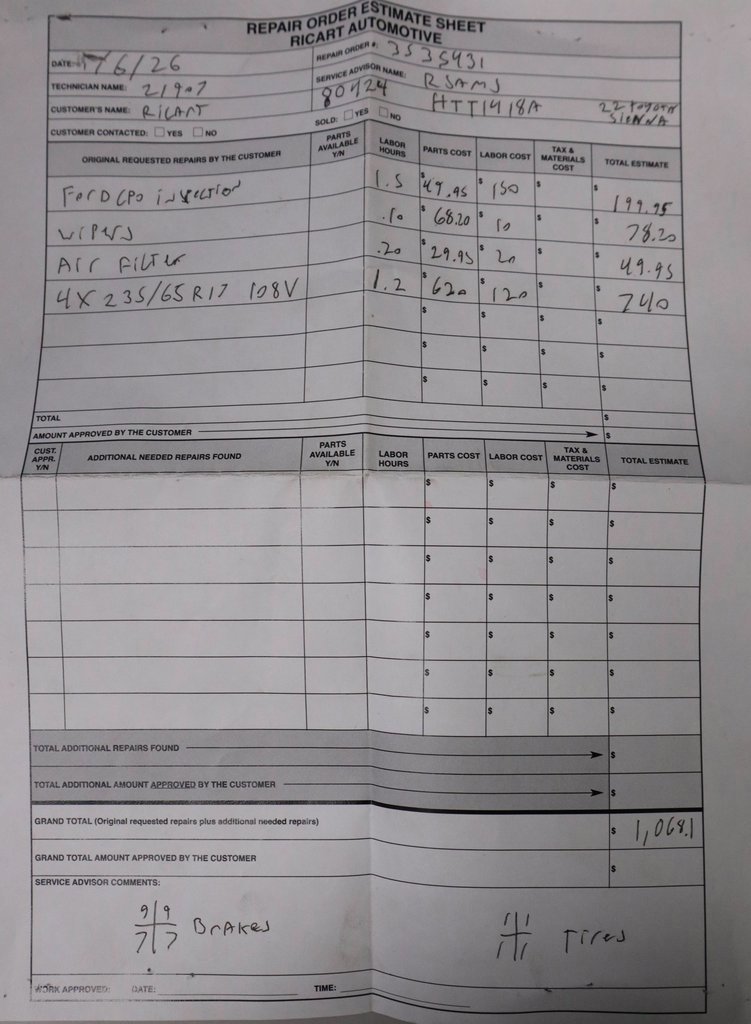 REPAIR ORDER ESTIMATE SHEET
RICART AUTOMOTIVE
DATE: 1/6/26 REPAIR ORDER #: 3535431
TECHNICIAN NAME: 21907 SERVICE ADVISOR NAME: RSAMS
CUSTOMER'S NAME: RICART 80424 HTT1418A 22 TOYOTA SIENNA
CUSTOMER CONTACTED: YES NO SOLD: YES NO
ORIGINAL REQUESTED REPAIRS BY THE CUSTOMER PARTS AVAILABLE Y/N LABOR HOURS PARTS COST LABOR COST TAX & MATERIALS COST TOTAL ESTIMATE
FORD CPO inspection 1.5 $49.95 $150 $ $199.95
WIPERS .10 $68.20 $10 $ $78.20
AIR FILTER .20 $29.95 $20 $ $49.95
4X 235/65R17 108V 1.2 $620 $120 $ $740
$ $ $ $
$ $ $ $
$ $ $ $
TOTAL $
AMOUNT APPROVED BY THE CUSTOMER $
CUST. APPR. Y/N ADDITIONAL NEEDED REPAIRS FOUND PARTS AVAILABLE Y/N LABOR HOURS PARTS COST LABOR COST TAX & MATERIALS COST TOTAL ESTIMATE
$ $ $ $
$ $ $ $
$ $ $ $
$ $ $ $
$ $ $ $
$ $ $ $
$ $ $ $
TOTAL ADDITIONAL REPAIRS FOUND $
TOTAL ADDITIONAL AMOUNT APPROVED BY THE CUSTOMER $
GRAND TOTAL (Original requested repairs plus additional needed repairs) $1,068.1
GRAND TOTAL AMOUNT APPROVED BY THE CUSTOMER $
SERVICE ADVISOR COMMENTS:
9 9 11 11
7 7 Brakes 11 11 Tires
WORK APPROVED: DATE: TIME: